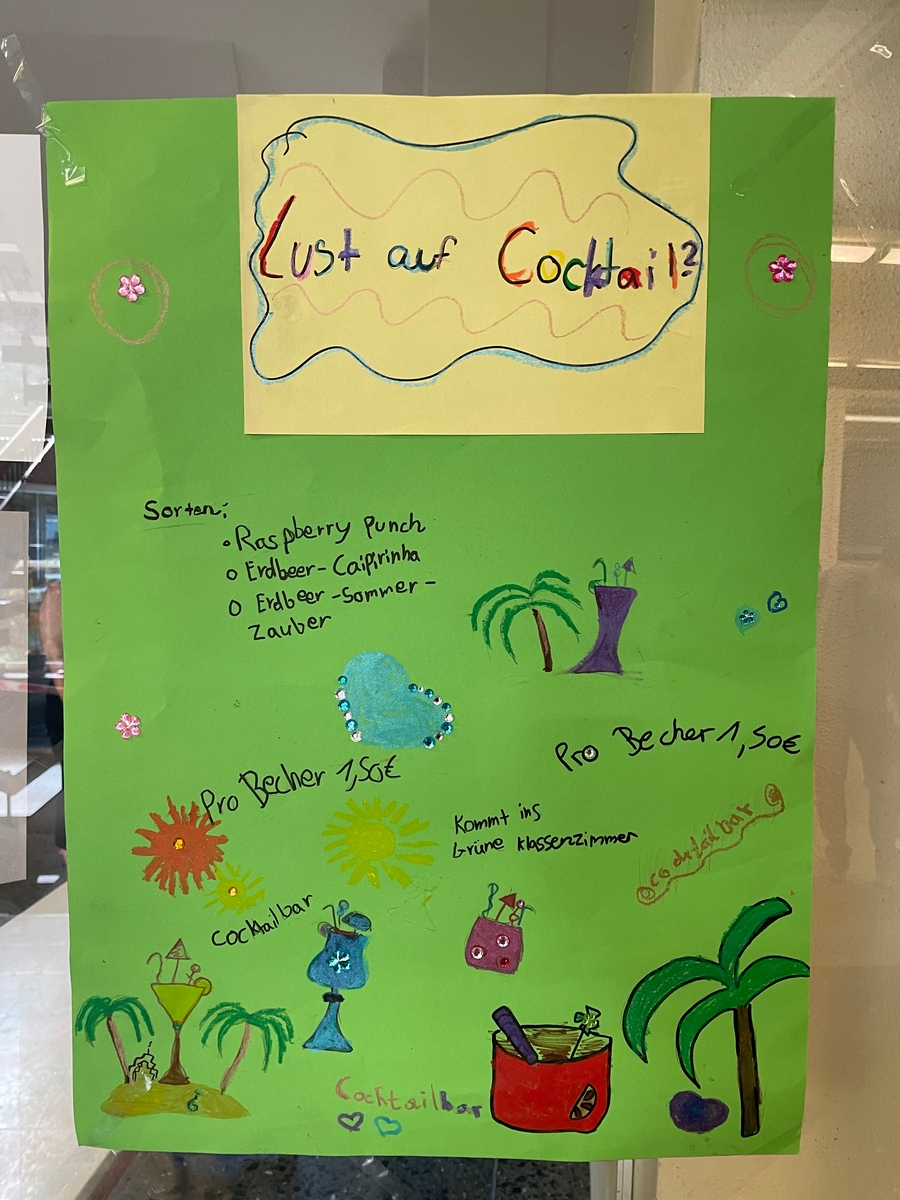 Lust auf Cocktail?
Sorten:
• Raspberry Punch
o Erdbeer-Caipirinha
o Erdbeer-Sommer-
Zauber
Pro Becher 1,50€
Pro Becher 1,50€
Kommt ins
Grüne klassenzimmer
cocktailbar
Cocktailbar
Cocktailbar